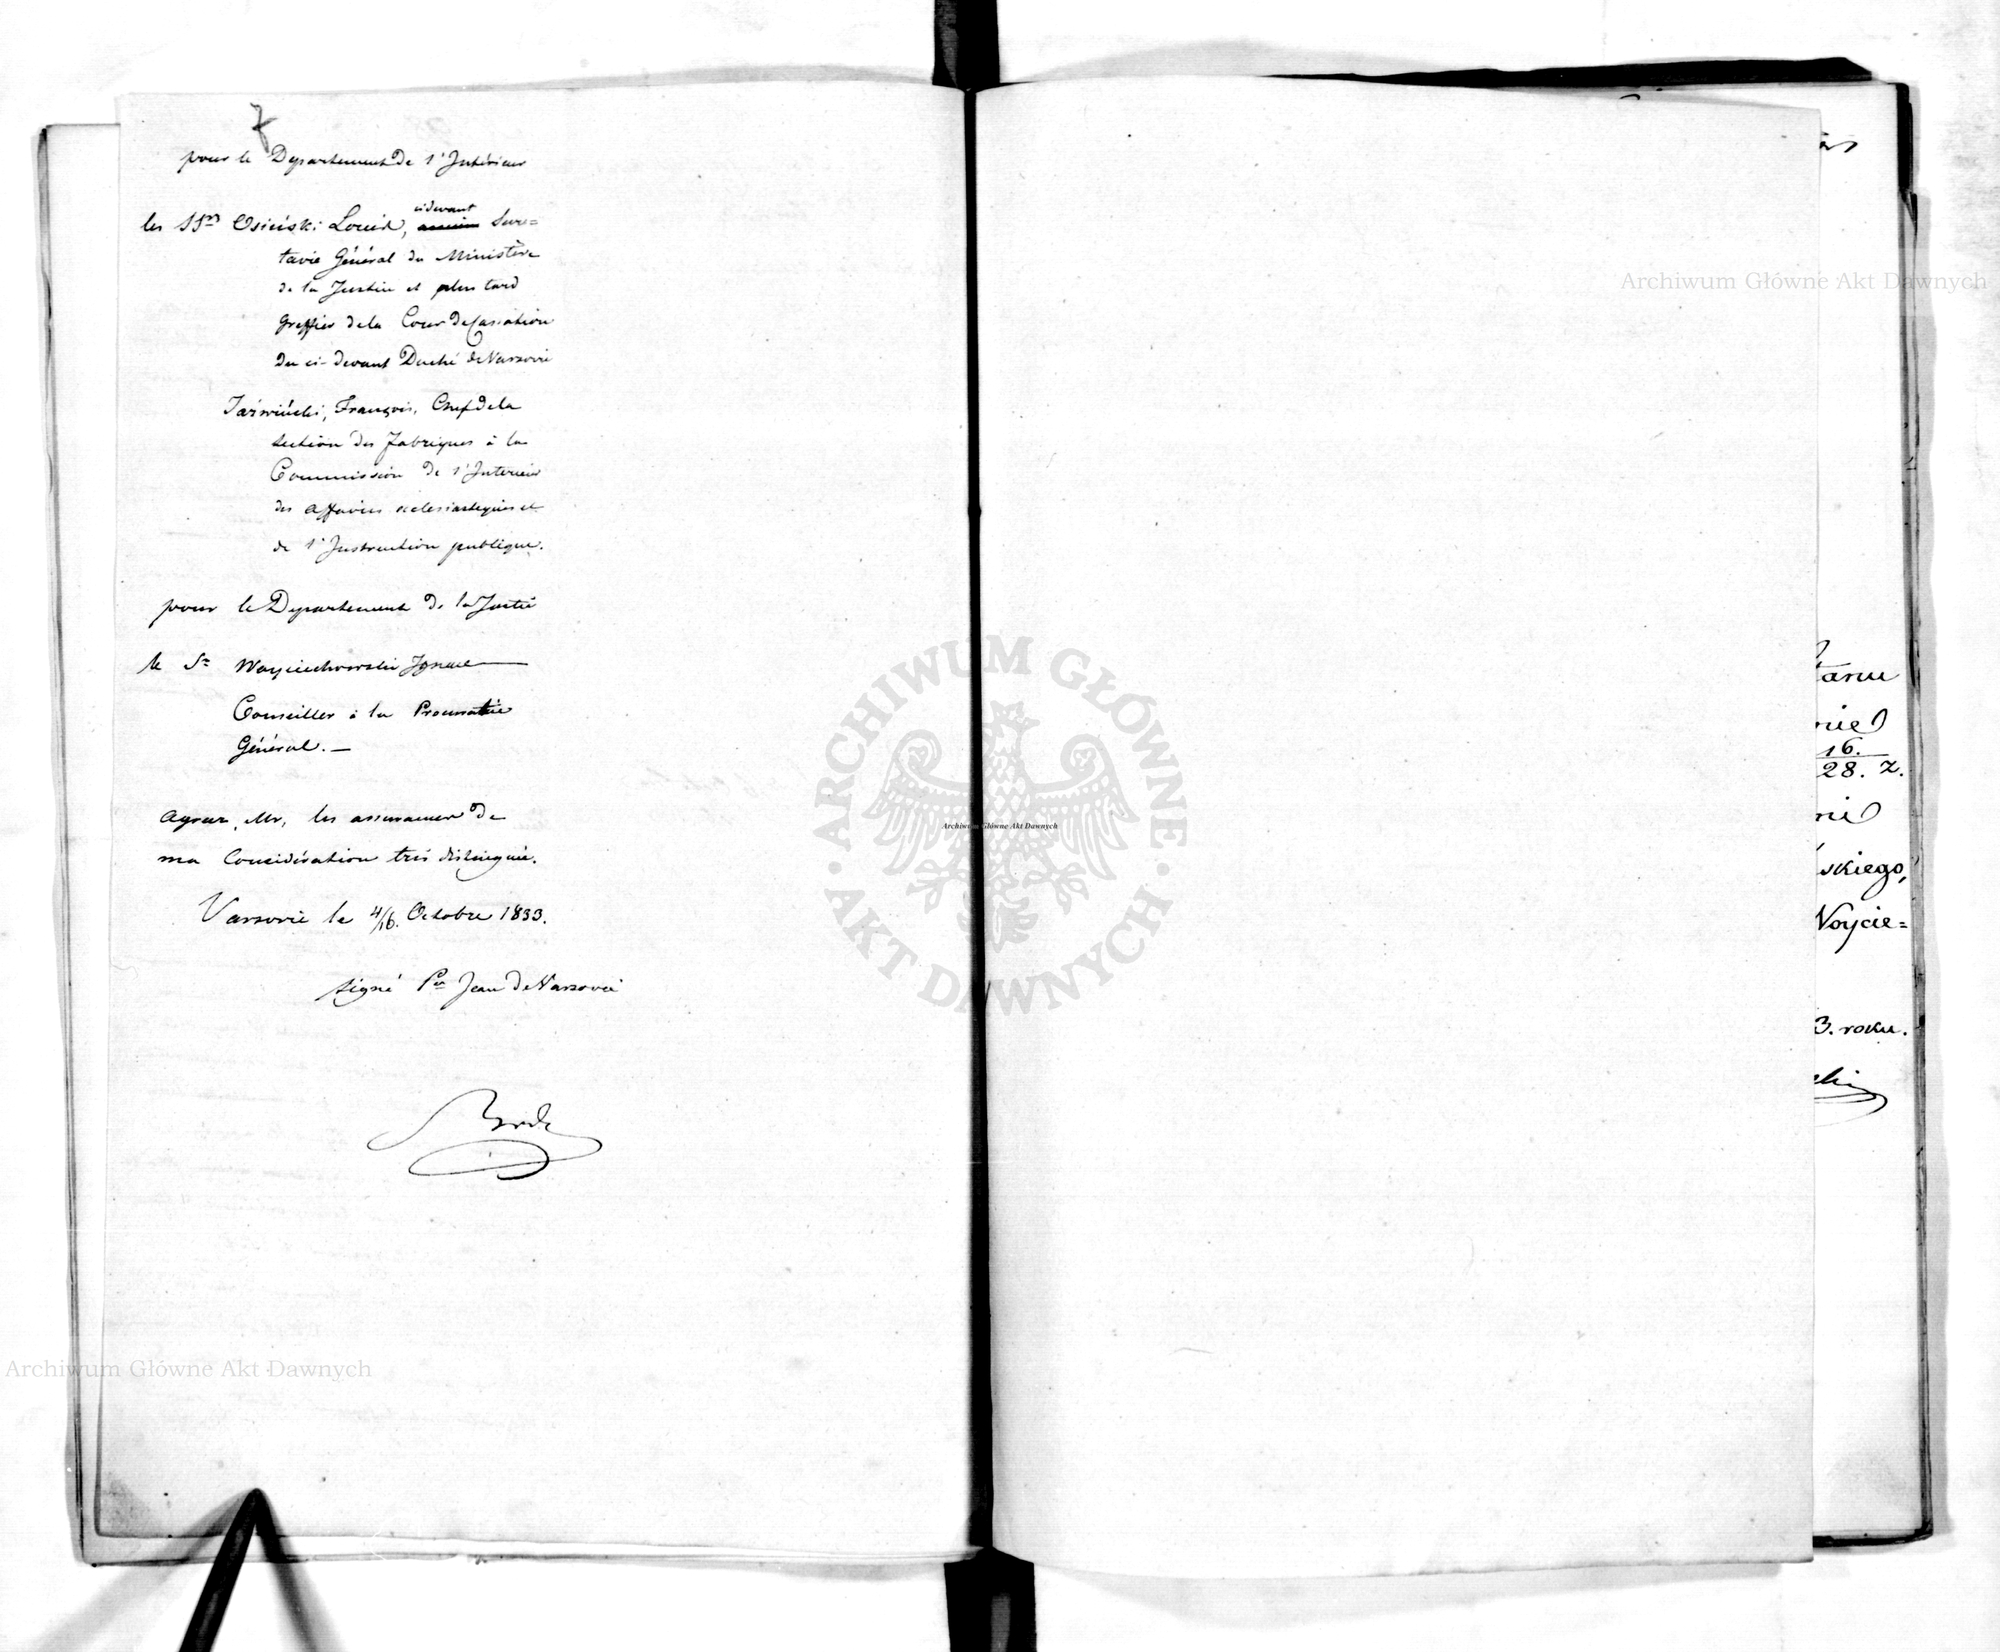 pour le Departement de l'Intérieur
les SSrs Osiński Louis, cidevant ancien Secre=
taire Général du Ministère
de la Justice et plus tard
Greffier de la Cour de Cassation
du ci-devant Duché de Varsovie
François, Chef de la
Section des Fabriques à la
Commission de l'Interieur
des affaires eclesiastiques et
de l'Instruction publique.
pour le Departement de la Justice
le Sr Woyciechowski Ignace
Conseiller à la
Général. —
Agréez, Mr, les assurances de
ma Considération très distinguée.
Varsovie le 4/16. Octobre 1833.
signé Pce Jean de Varsovie
Archiwum Główne Akt Dawnych
tanu
nie
16.
28. z.
nie
skiego,
Woycie=
3. roku.
ARCHIWUM GŁÓWNE AKT DAWNYCH
Archiwum Główne Akt Dawnych
Archiwum Główne Akt Dawnych